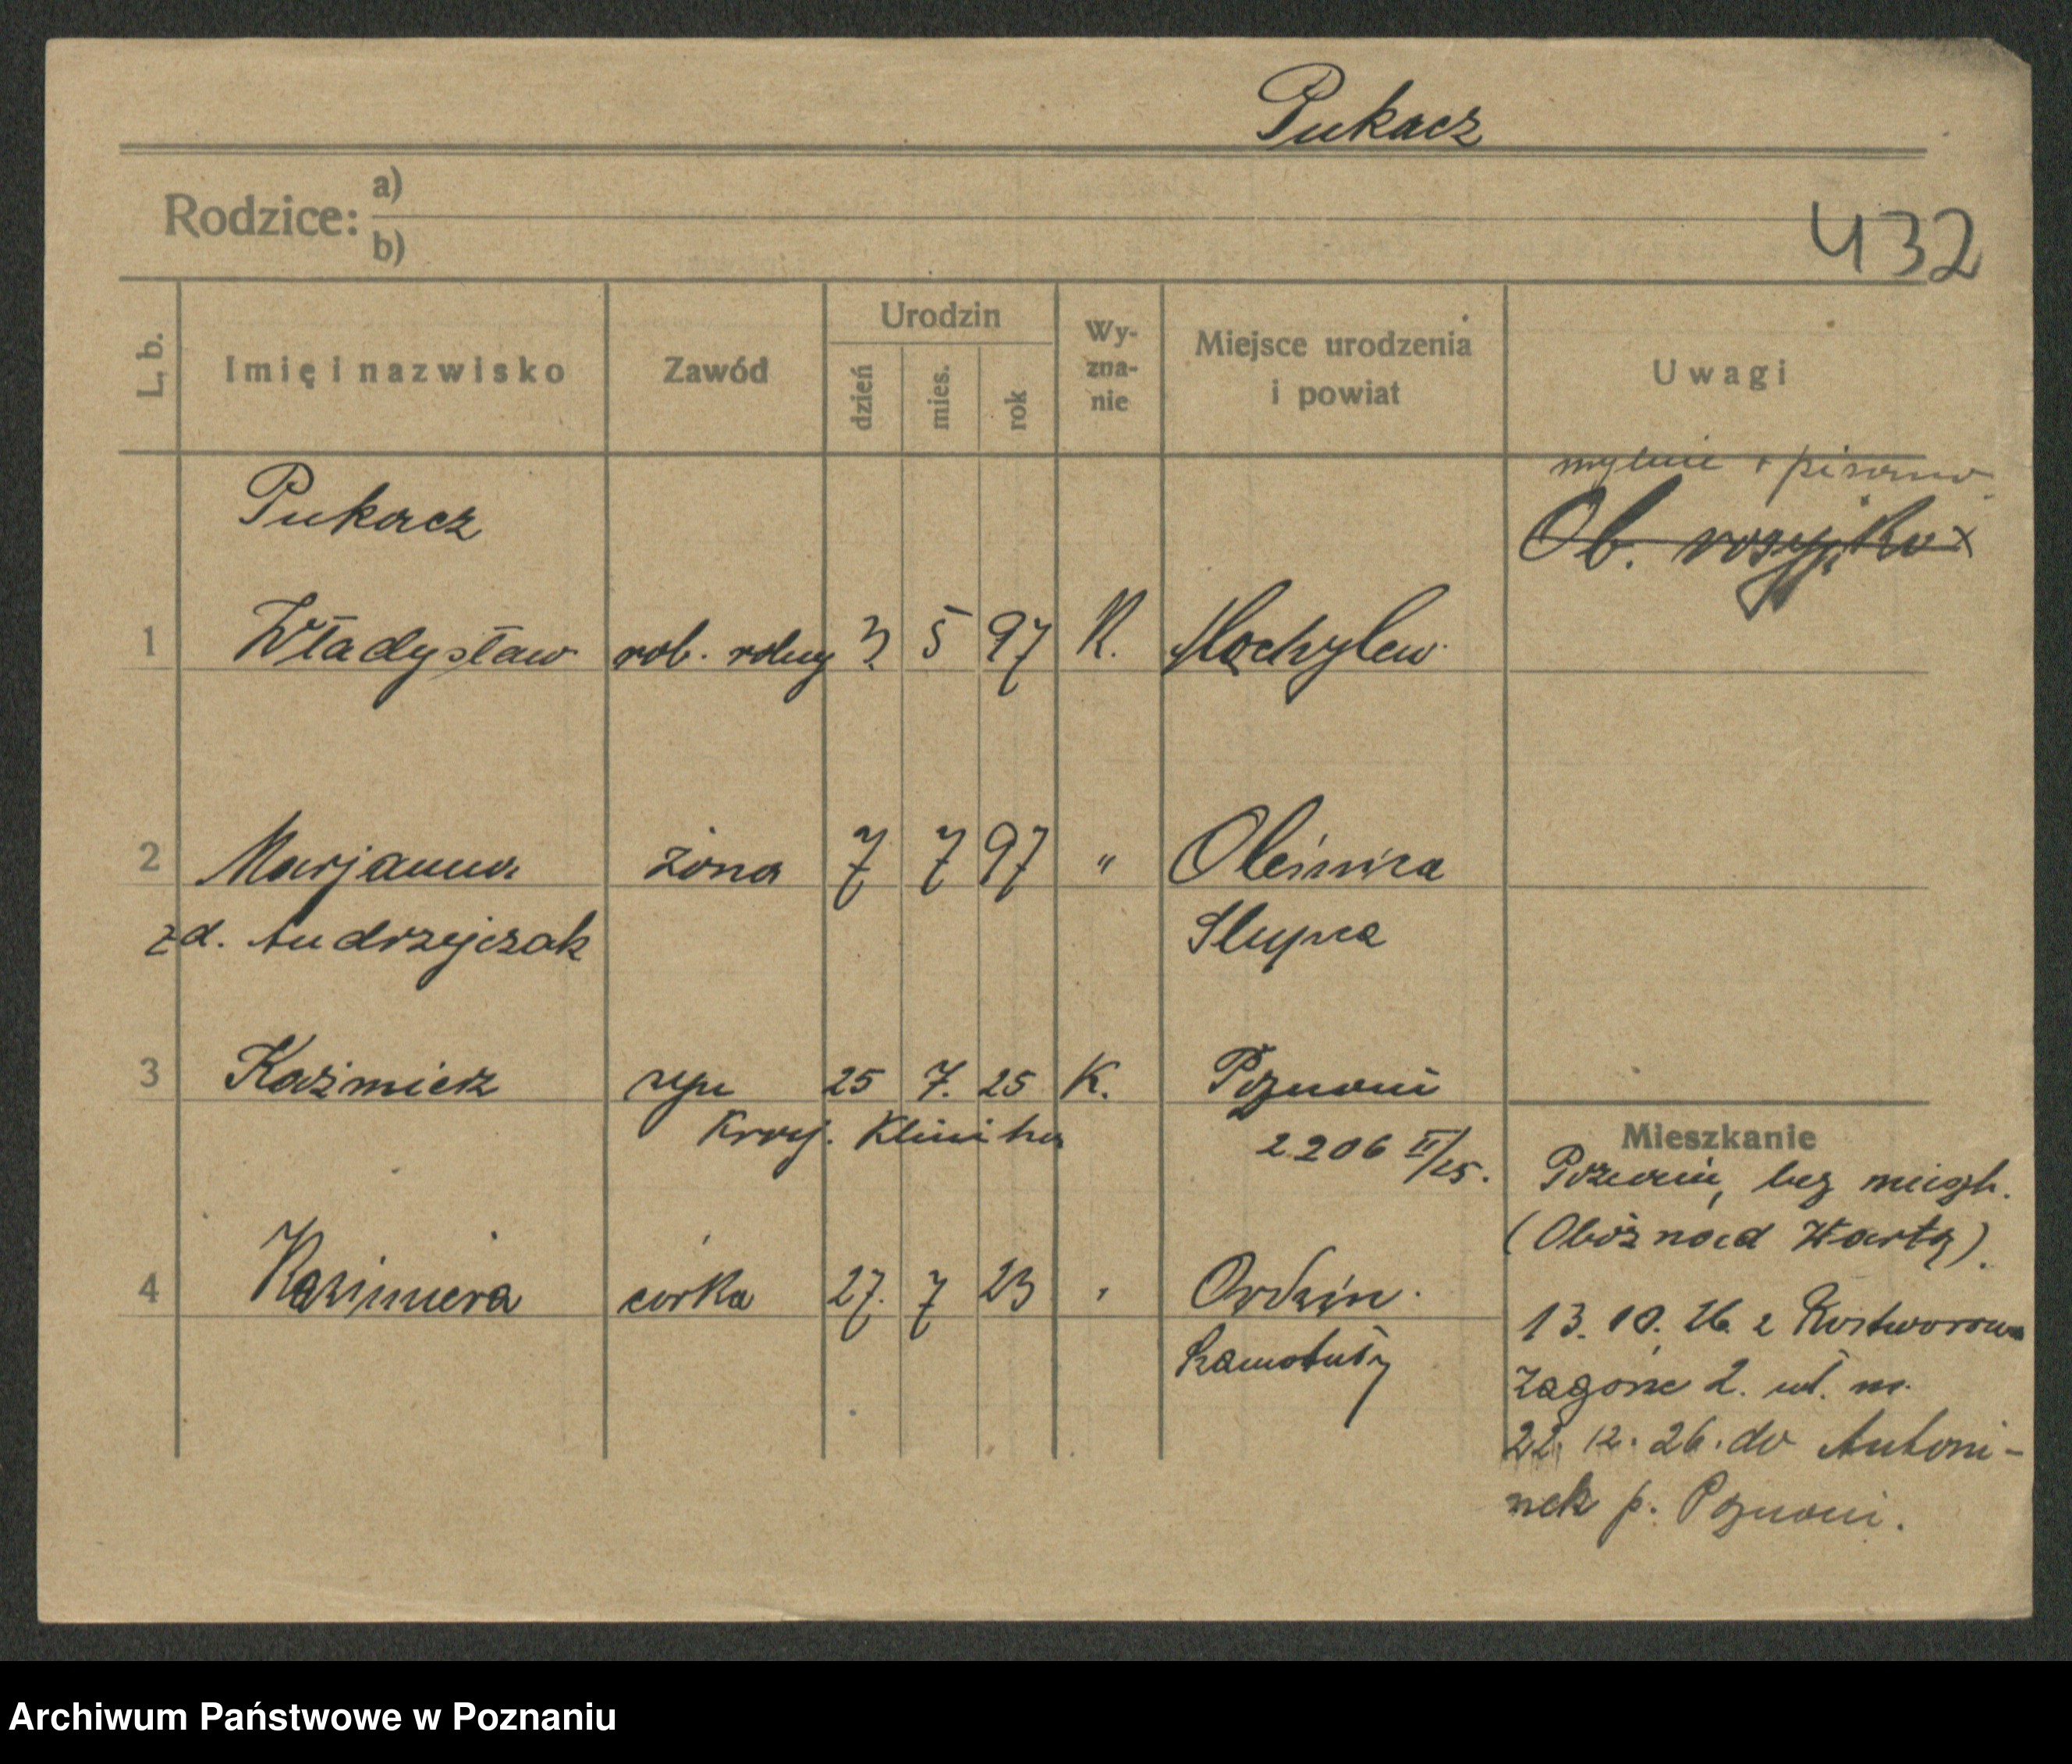 Pukacz
Rodzice: a)
b)
432
L. b.
Imię i nazwisko
Zawód
Urodzin
dzień
mies.
rok
Wy-
zna-
nie
Miejsce urodzenia
i powiat
Uwagi
mylnie pisano
Pukacz
Ob. rosyjska x
1 Władysław rob. rolny 3. 5 97 K. Mochylew
2 Marjanna żona 7 7 97 " Oleśnica
zd. Andrzejczak Slupca
3 Kaźmierz syn 25 7. 25 K. Poznań
Kraj. Klinika 2206 II/25.
Mieszkanie
Poznań, bez mieszk.
(Obóz nad Wartą).
4 Kazimiera córka 27. 7 23 " Ordzin
Szamotuły
13. 10. 26. z Kostworowa
Zagórze 2. wł. m.
22. 12. 26. do Antoni-
nek p. Poznań.
Archiwum Państwowe w Poznaniu